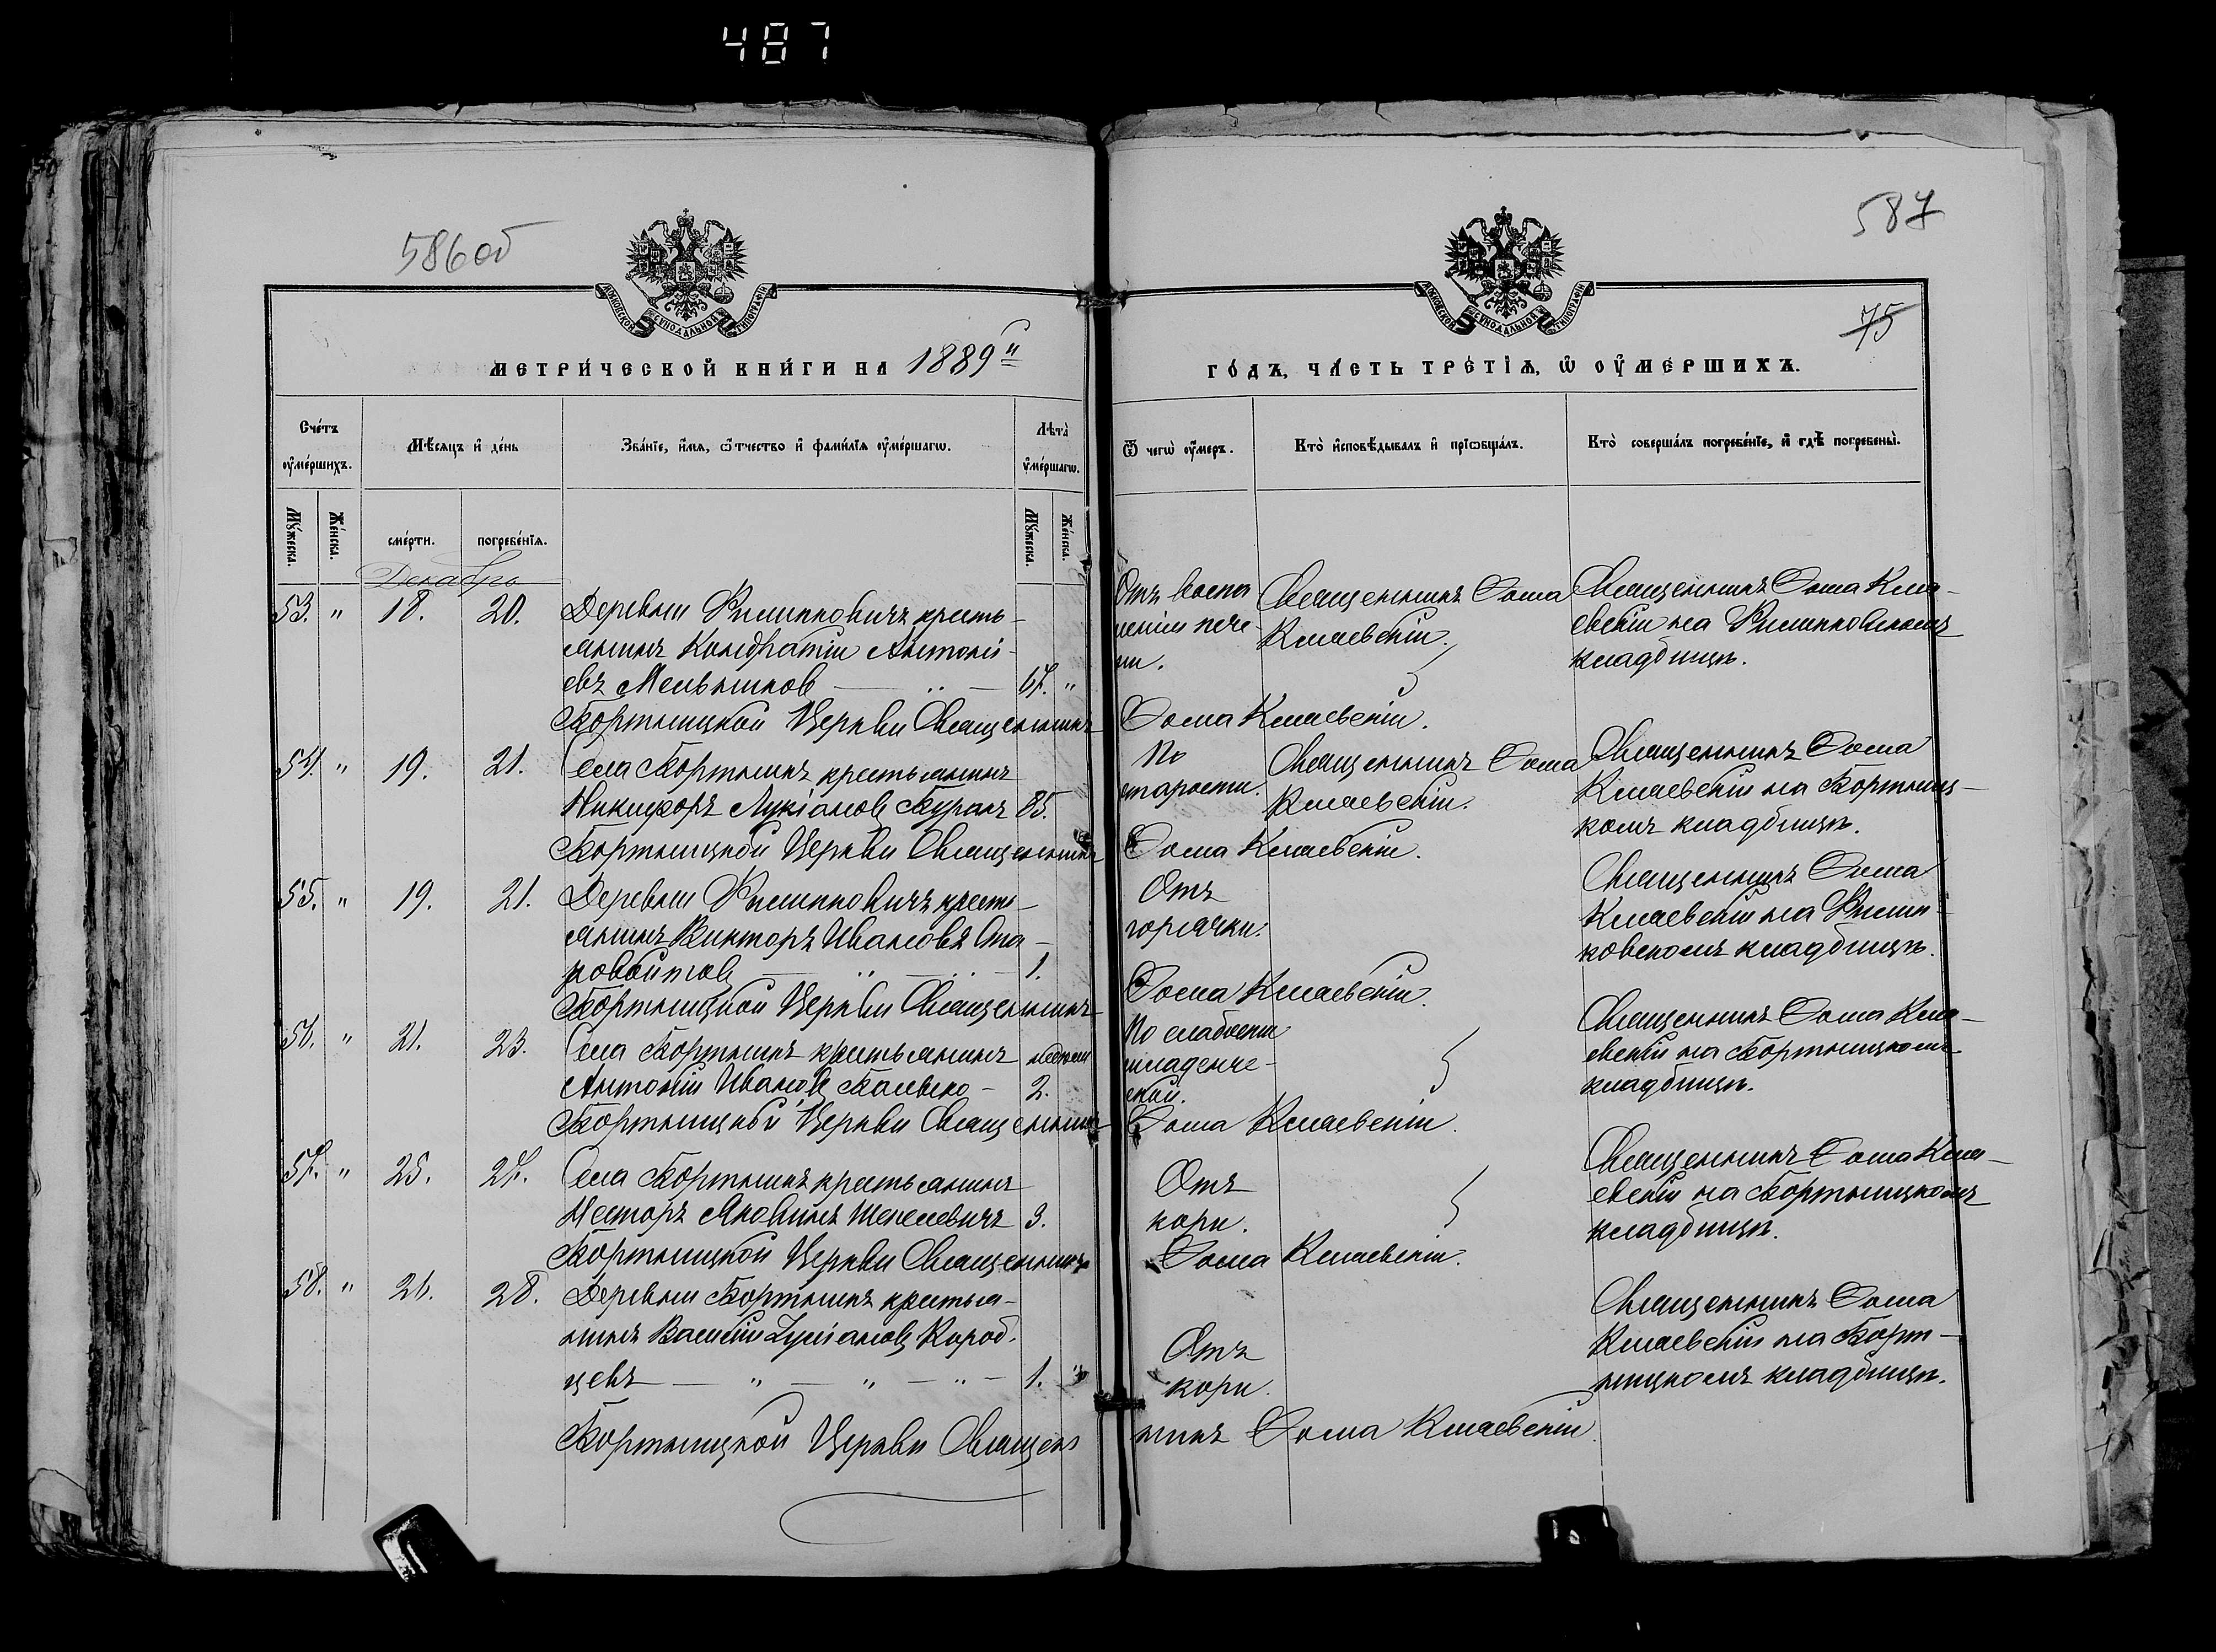 487
586об
587
75
МОСКОВСКОЙ СѴНОДАЛЬНОЙ ТИПОГРАФІИ
МОСКОВСКОЙ СѴНОДАЛЬНОЙ ТИПОГРАФІИ
МЕТРИ́ЧЕСКОЙ КНИ́ГИ НА 1889й
ГО́ДЪ, ЧА́СТЬ ТРЕ́ТІѦ, Ѡ҆ ОУ҆МЕ́РШИХЪ.
Сче́тъ оу҆ме́ршихъ.
Мѣ́сяцъ и҆ де́нь
Зва́нїе, и҆́мя, ѻ҆́тчество и҆ фами́лїя оу҆ме́ршагѡ.
Лѣта̀ оу҆ме́ршагѡ.
Ѿ чегѡ̀ оу҆́меръ.
Кто̀ и҆сповѣ́дывалъ и҆ прїѡбща́лъ.
Кто̀ соверша́лъ погребе́нїе, и҆ гдѣ̀ погребены̀.
Мꙋ́жеска.
Же́нска.
сме́рти.
погребе́нїя.
Мꙋ́жеска.
Же́нска.
Декабрь
53. " 18. 20. Деревни Филипповичъ кресть-
янинъ Кондратій Антоні-
евъ Мельников — " — 67. "
Отъ воспа
ленія пече
ни.
Священникъ Ѳома
Клаевскій.
Священникъ Ѳома Кла-
евскій на Филипповскомъ
кладбищѣ.
Бортницкой Церкви Священникъ Ѳома Клаевскій.
54. " 19. 21. Села Бортникъ крестьянинъ
Никифоръ Лукіановъ Буракъ 85.
По
старости.
Священникъ Ѳома
Клаевскій.
Священникъ Ѳома
Клаевскій на Бортниц-
комъ кладбищѣ.
Бортницкой Церкви Священникъ Ѳома Клаевскій.
55. " 19. 21. Деревни Филипповичъ кресть-
янинъ Викторъ Ивановъ Ста-
ровойтовъ — " — " — 1.
Отъ
горячки.
Священникъ Ѳома
Клаевскій на Филип-
ковскомъ кладбищѣ.
Бортницкой Церкви Священникъ Ѳома Клаевскій.
56. " 21. 23. Села Бортникъ крестьянинъ недѣли
Антоній Ивановъ - 2.
По слабости
младенче-
ской.
Священникъ Ѳома Кла-
евскій на Бортницкомъ
кладбищѣ.
Бортницкой Церкви Священникъ Ѳома Клаевскій.
57. " 25. 27. Села Бортникъ крестьянинъ
Несторъ Яковлевъ Шепелевичъ 3.
Отъ
кори.
Священникъ Ѳома Кла-
евскій на Бортницкомъ
кладбищѣ.
Бортницкой Церкви Священникъ Ѳома Клаевскій.
58. " 26. 28. Деревни Бортникъ крестья-
нинъ Василій Луціановъ Короб-
цевъ — " — " — " — 1. "
Отъ
кори.
Священникъ Ѳома
Клаевскій на Борт-
ницкомъ кладбищѣ.
Бортницкой Церкви Священ
никъ Ѳома Клаевскій